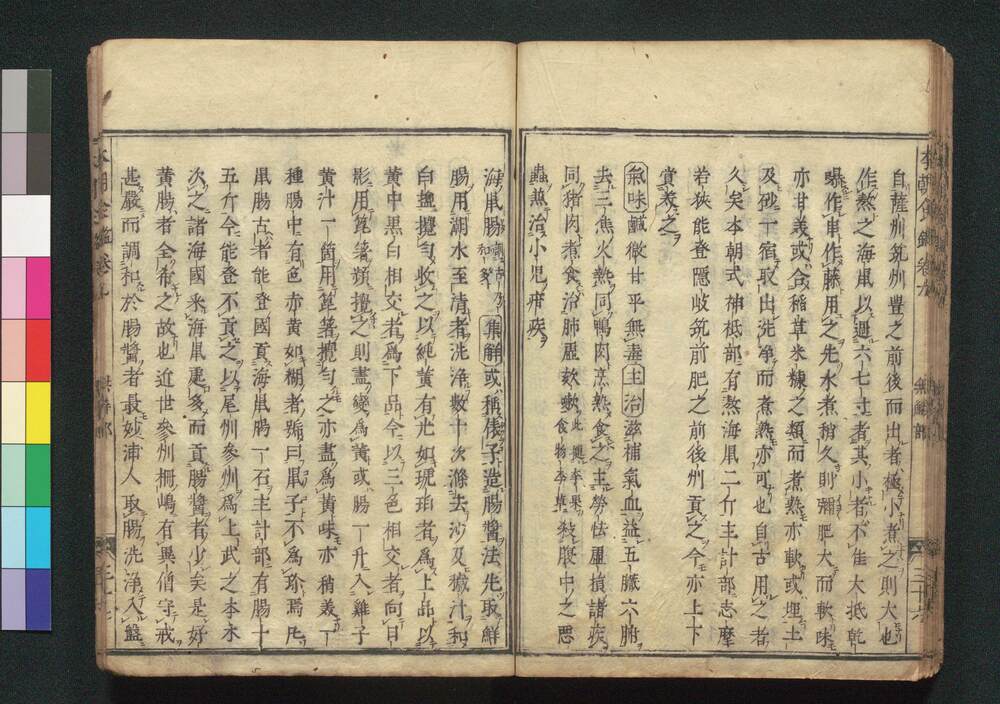 本朝食鑑卷九 無鱗部 三十六
自薩州筑州豐之前後而出者極小煮之則大也
作熬之海鼠以過六七寸者其小者不佳大抵乾
曝作串作藤用之先水煮稍久則彌肥大而軟味
亦甘美或合稻草米糠之類而煮熟亦軟或埋土
及砂一宿取出洗淨而煮熟亦可也自古用之者
久矣本朝式神祇部有熬海鼠二斤主計部志摩
若狹能登隱岐筑前肥之前後州貢之今亦上下
賞美之
氣味鹹微甘平無毒主治滋補氣血益五臟六腑
去三焦火熱同鴨肉烹熟食之主勞怯虛損諸疾
同猪肉煮食治肺虛欬嗽此與李果食物本草殺腹中之惡
蟲烝治小兒疳疾
海鼠腸 集解或稱俵子造腸醬法先取鮮
腸用潮水至清者洗淨數十次滌去沙及穢汁和
白鹽攪勻收之以純黃有光如琥珀者爲上品以
黃中黑白相交者爲下品今以三色相交者向日
影用箆箸頻攪之則盡變爲黃或腸一升入雞子
黃汁一箇用箆箸攪勻之亦盡爲黃味亦稍美一
種腸中有色赤黃如糊者號曰鼠子不爲珍焉凡
鼠腸古者能登國貢海鼠腸一石主計部有腸十
五斤今能登不貢之以尾州參州爲上武之本木
次之諸海國釆海鼠處多而貢腸醬者少矣是好
黃腸者全希之故也近世參州柵嶋有異僧守戒
甚嚴而調和於腸醬者最妙浦人取腸洗淨入盤